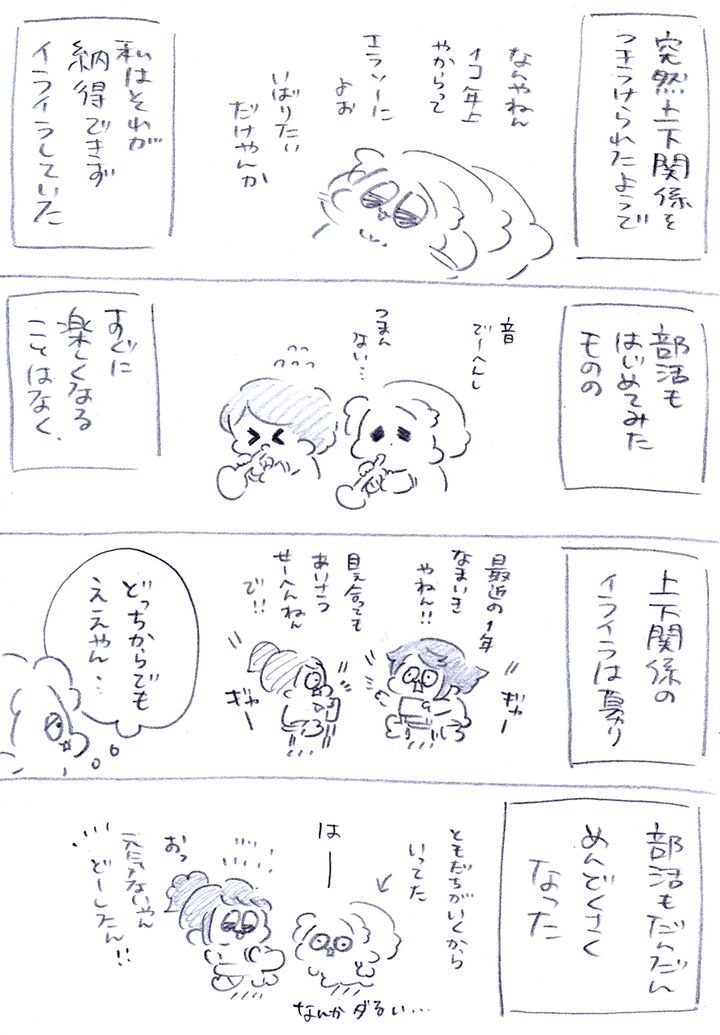 突然上下関係を
つきつけられたようで
なんやねん
1コ年上
やからって
エラソーに
よお
いばりたい
だけやんか
私はそれが
納得できず
イライラしていた
部活も
はじめてみた
ものの
音
でーへんし
つまん
ない…
すぐに
楽しくなる
ことはなく、
上下関係の
イライラは募り
最近の1年
なまいき
やねん!!
ギャー
目え合っても
あいさつ
せーへんねん
で!!
ギャー
どっちからでも
ええやん…
部活もだんだん
めんどくさく
なった
ともだちがいくから
いってた
はー
なんかダるい…
おっ
元気ないやん
どーしたん!!